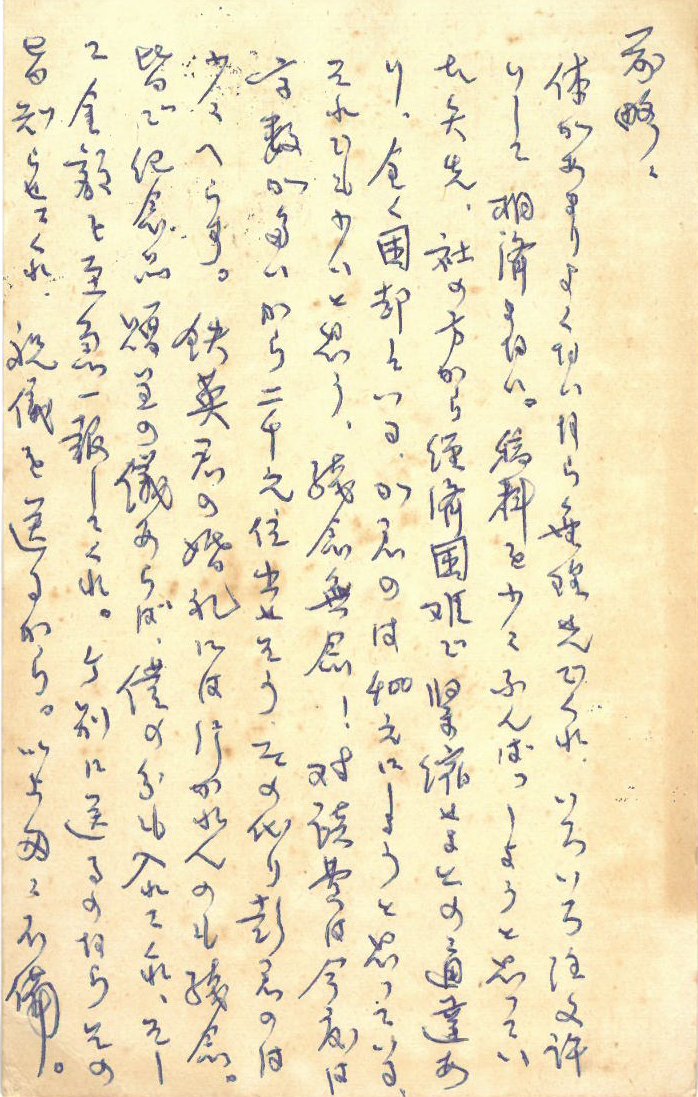 前略、
体があまりよくないなら無理せんでくれ、いろいろ注文許
りして相済まない。稿料を少々ふんぱつしようと思ってい
た矢先、社の方から経済困難で緊縮せよとの通達あ
り、全く困却している、か君のは400元にしようと思っている、
それでも少いと思う、残念無念!対談費は今度は
字数が多いから二千元位出せそう、その代り彭君のは
少々へらす。鉄英君の婚礼には行かれんのも残念。
皆で紀念品贈呈の儀あらば、僕の分も入れてくれ、そし
て金額を至急一報してくれ。々別に送るのならその
旨知らせてくれ、祝儀を送るから。以上匆々不備。